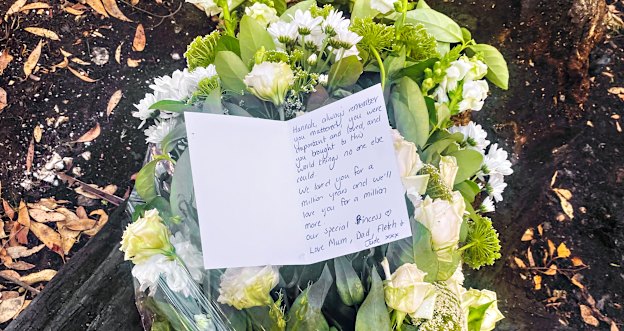 Hannah, always remember
you mattered, you were
important and loved, and
you brought to this
world things no one else
could
We loved you for a
million years and we'll
love you for a million
more ♡
Our special princess
Love Mum, Dad, Fletch +
Jade xxx